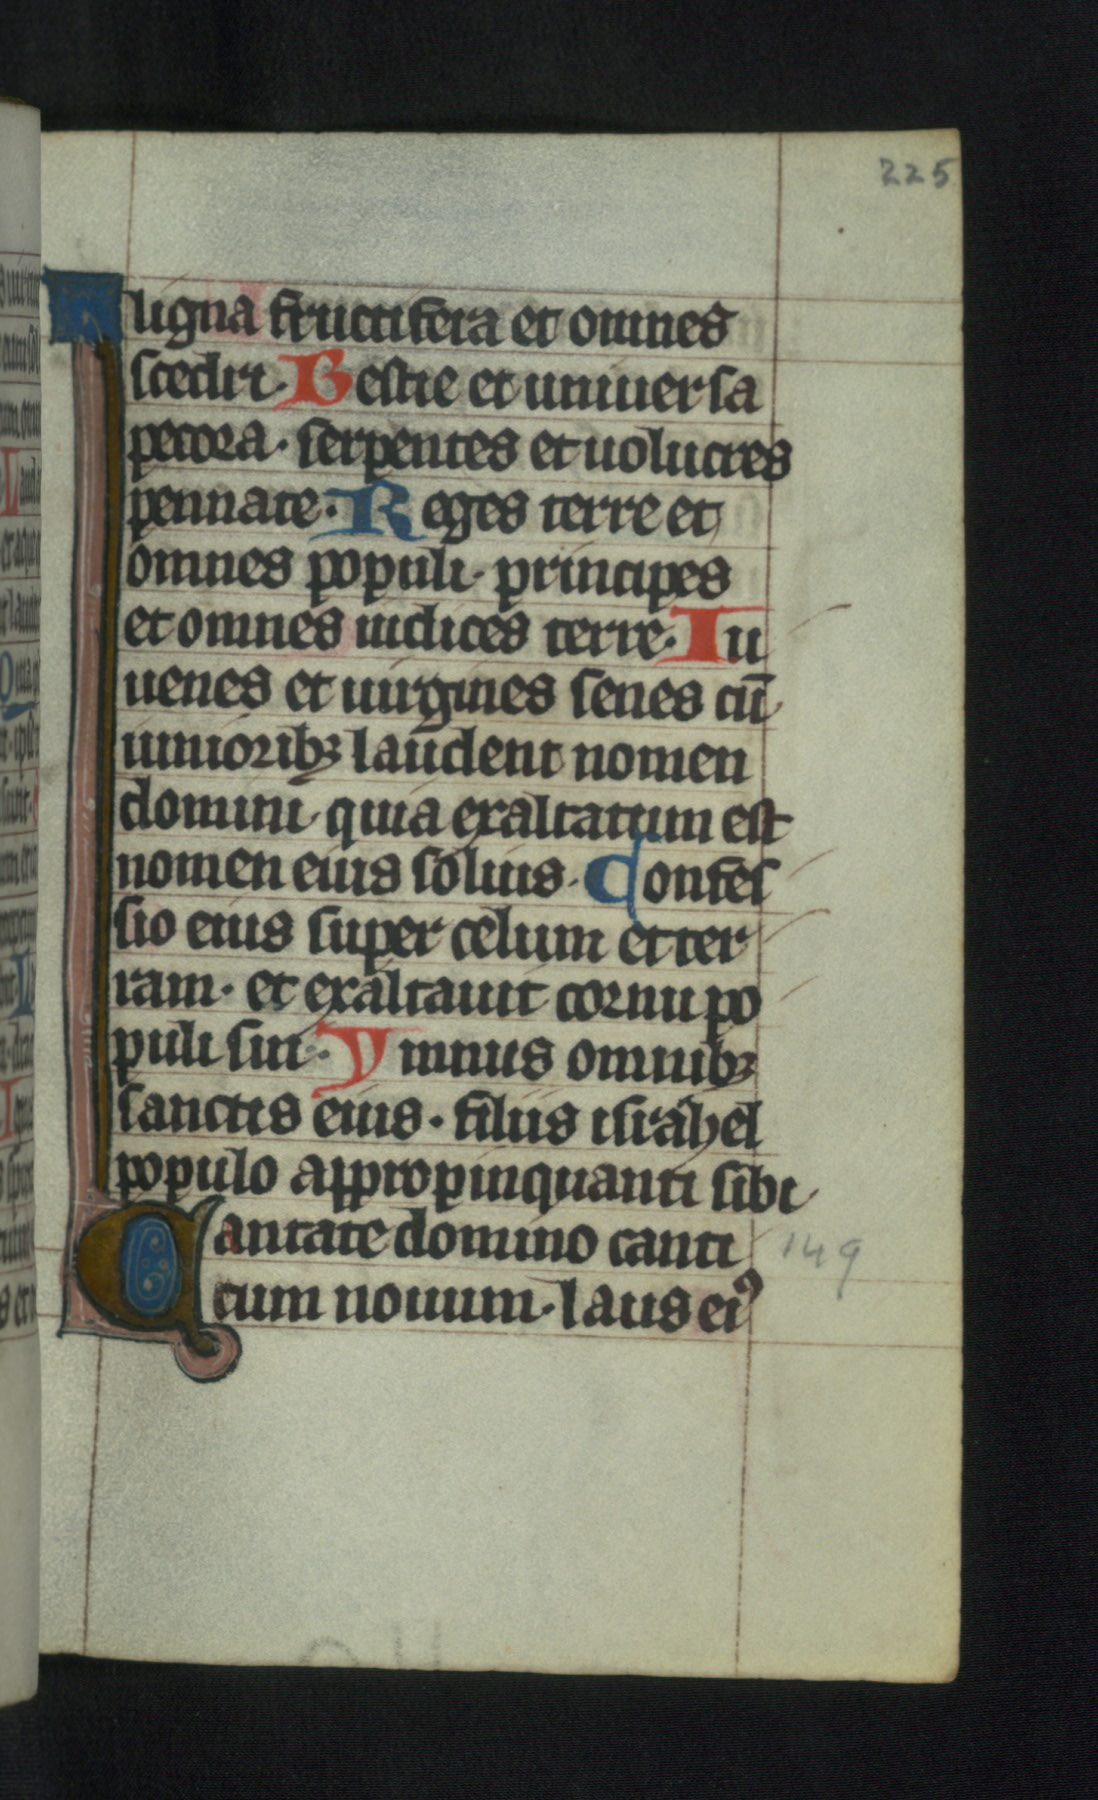 225
ligna fructifera et omnes
scedri. Bestie et uniuersa
pecora. serpentes et uolucres
pennate. Reges terre et
omnes populi. principes
et omnes iudices terre. Iu
uenes et uirgines senes cū
iunioribꝫ laudent nomen
domini. quia exaltatum est
nomen eius solius. Confes
sio eius super celum et ter
ram. et exaltauit cornu po
puli sui. Ymnus omnibꝫ
sanctis eius. filiis israhel
populo appropinquanti sibi
Cantate domino canti 149
cum nouum. laus eiꝰ